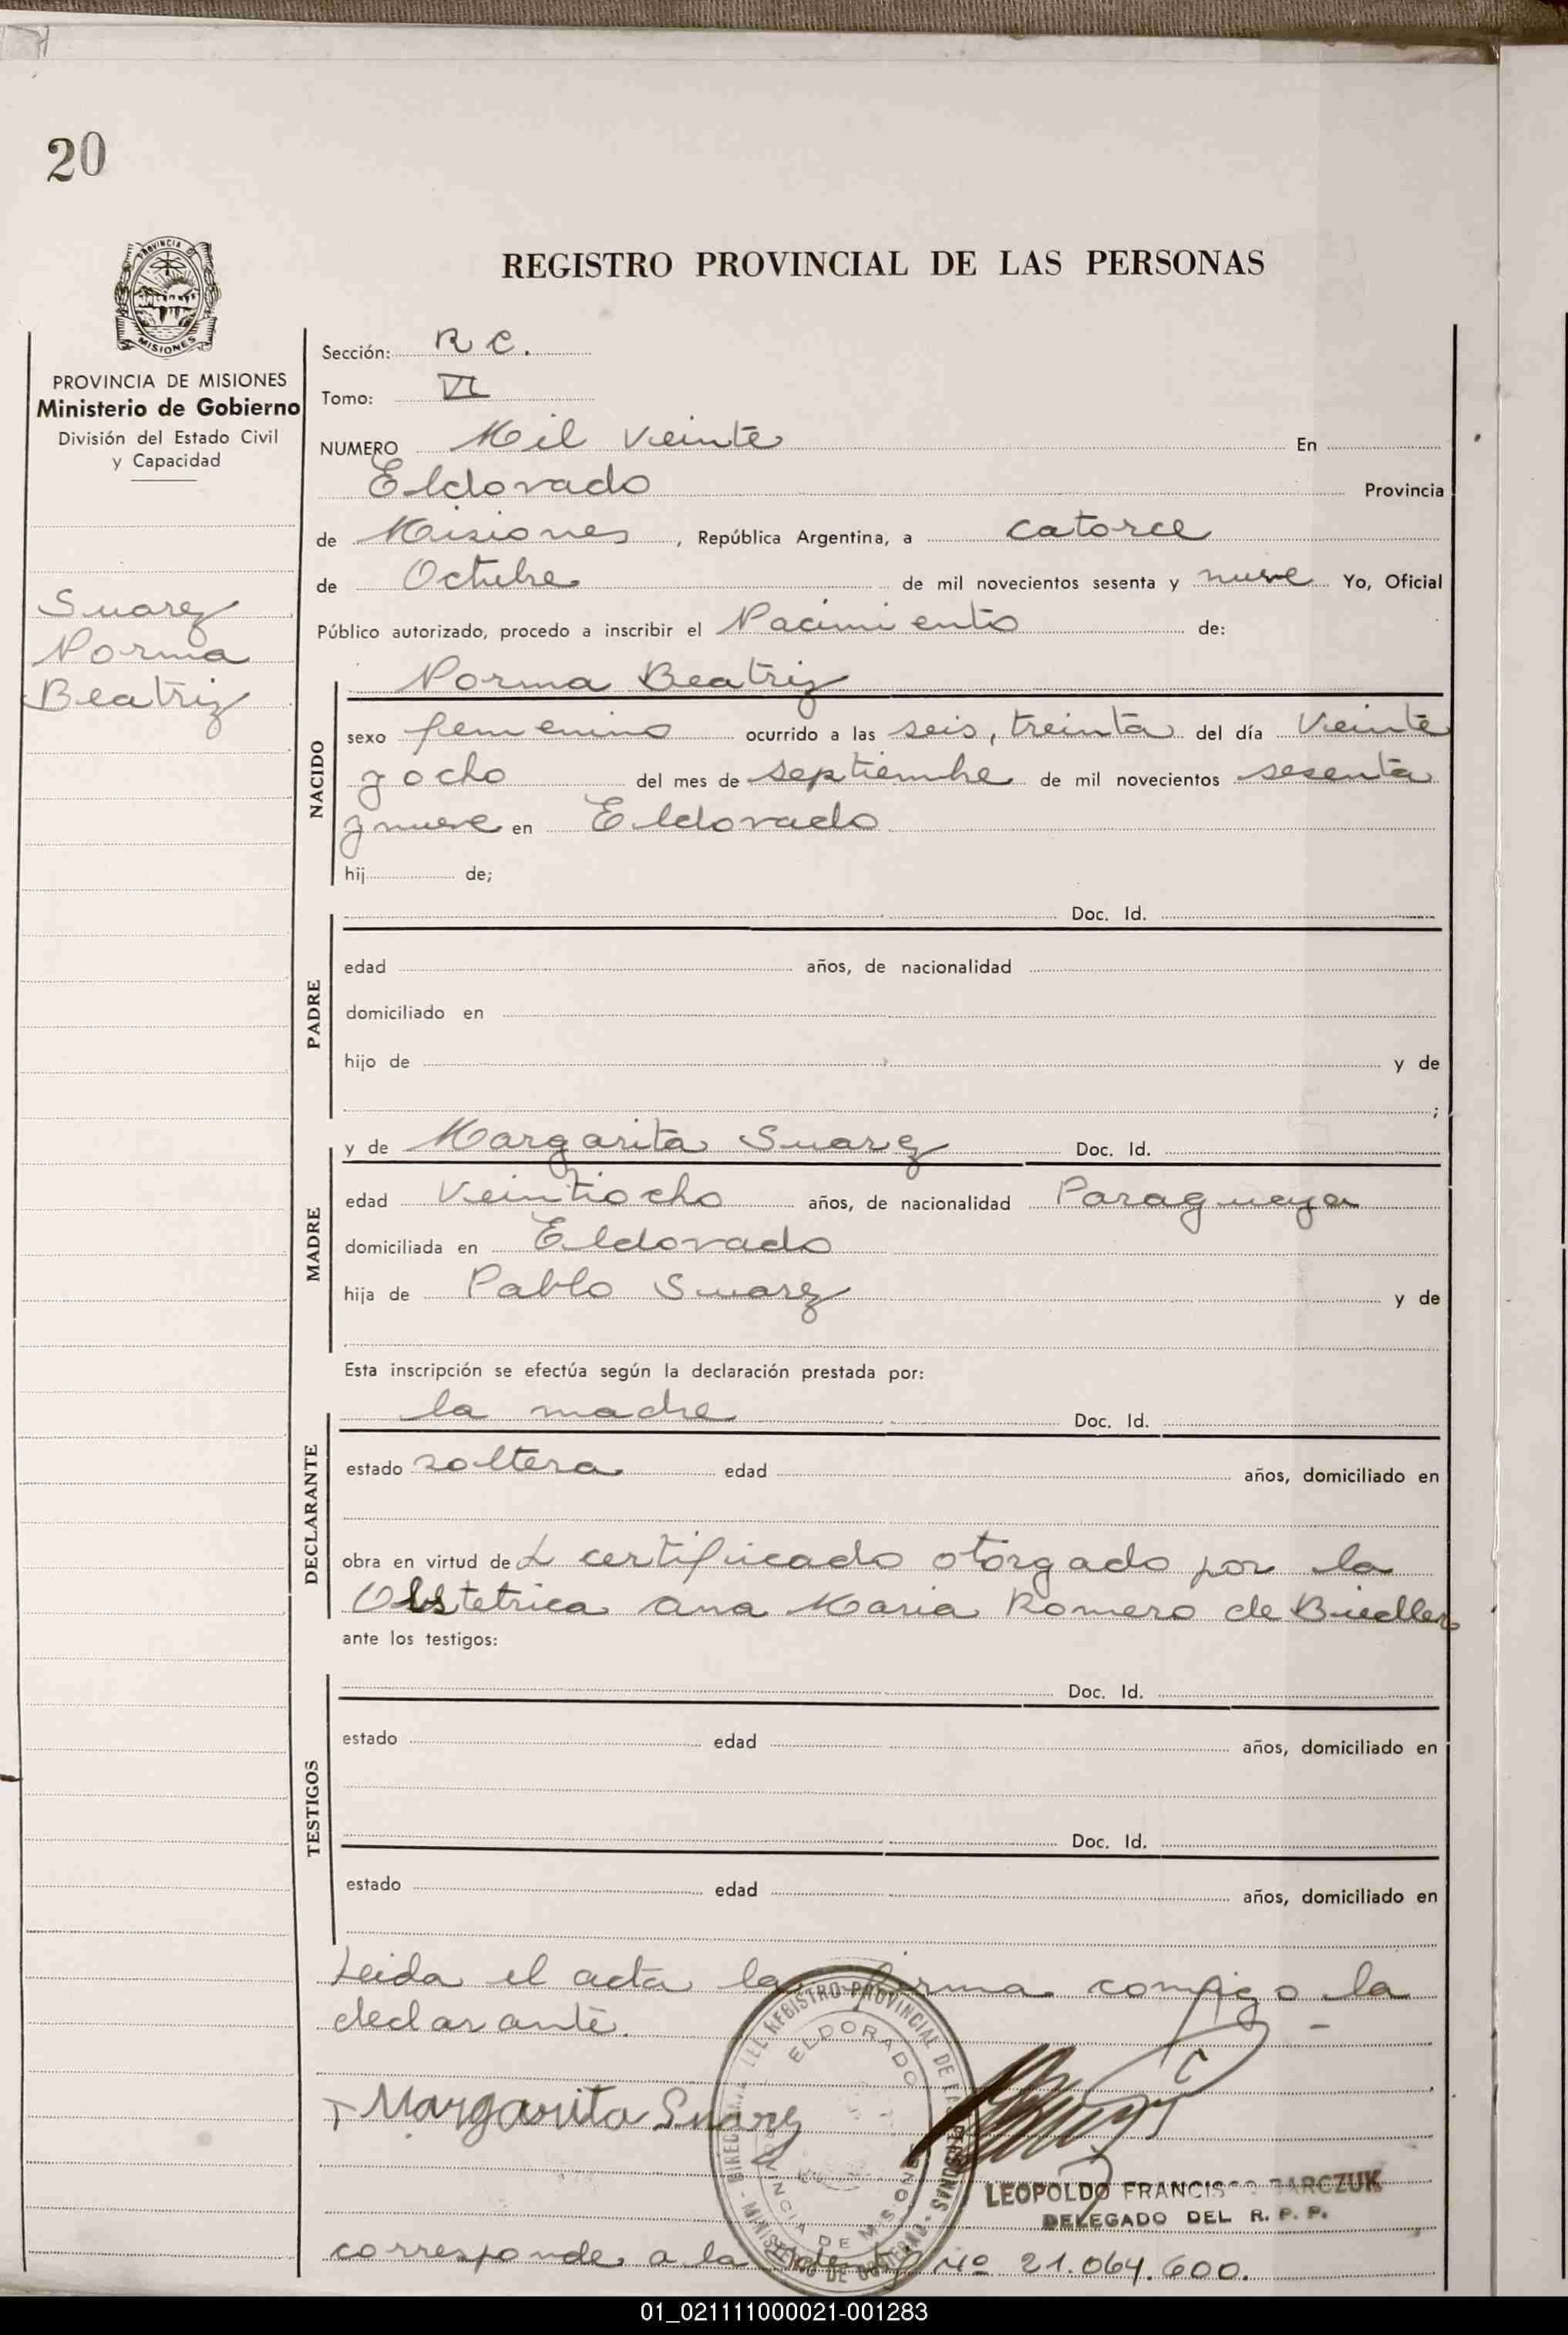 20
PROVINCIA
MISIONES
PROVINCIA DE MISIONES
Ministerio de Gobierno
División del Estado Civil
y Capacidad
Suarez
Norma
Beatriz
REGISTRO PROVINCIAL DE LAS PERSONAS
Sección: R C.
Tomo: VI
NUMERO Mil veinte En
Eldorado Provincia
de Misiones, República Argentina, a catorce
de Octubre de mil novecientos sesenta y nueve Yo, Oficial
Público autorizado, procedo a inscribir el Nacimiento de:
Norma Beatriz
NACIDO
sexo femenino ocurrido a las seis, treinta del día veinte
y ocho del mes de septiembre de mil novecientos sesenta
y nueve en Eldorado
hij de;
PADRE
Doc. Id.
edad años, de nacionalidad
domiciliado en
hijo de y de
;
MADRE
y de Margarita Suarez Doc. Id.
edad Veintiocho años, de nacionalidad Paraguaya
domiciliada en Eldorado
hija de Pablo Suarez y de
Esta inscripción se efectúa según la declaración prestada por:
DECLARANTE
la madre Doc. Id.
estado soltera edad años, domiciliado en
obra en virtud de L certificado otorgado por la
Obstetrica Ana Maria Romero de
ante los testigos:
TESTIGOS
Doc. Id.
estado edad años, domiciliado en
Doc. Id.
estado edad años, domiciliado en
Leida el acta la firma conmigo la
declarante.
Margarita Suarez
REGISTRO PROVINCIAL DE LAS PERSONAS
MINISTERIO DE GOBIERNO
ELDORADO
PROVINCIA DE MISIONES
LEOPOLDO FRANCISCO BARCZUK
DELEGADO DEL R. P. P.
corresponde a la Nº 21.064.600.
01_021111000021-001283